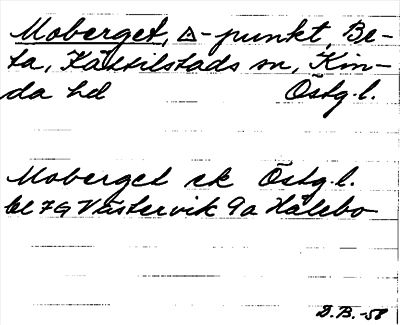 Moberget, △-punkt, Be-
ta, Kättilstads sn, Kin-
da hd Östg.l.
Moberget ek Östg.l.
bl 7G Västervik 9a Hålebo
D.B.-58